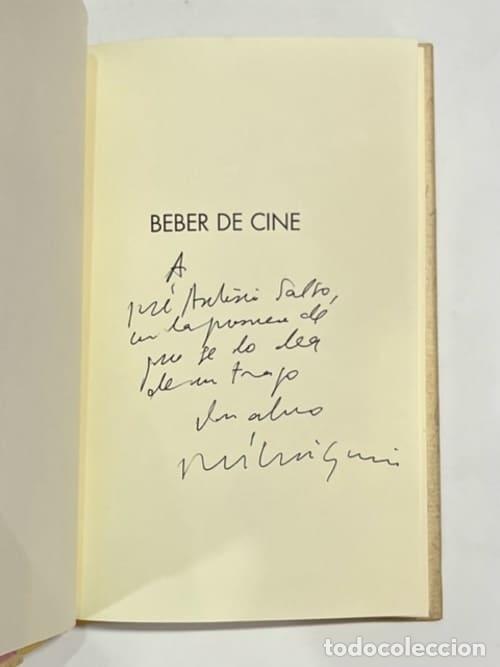 BEBER DE CINE
A
José Antonio Salso,
con la promesa de
que se lo lea
de un trago
Un abrazo
todocoleccion
todocoleccion.net